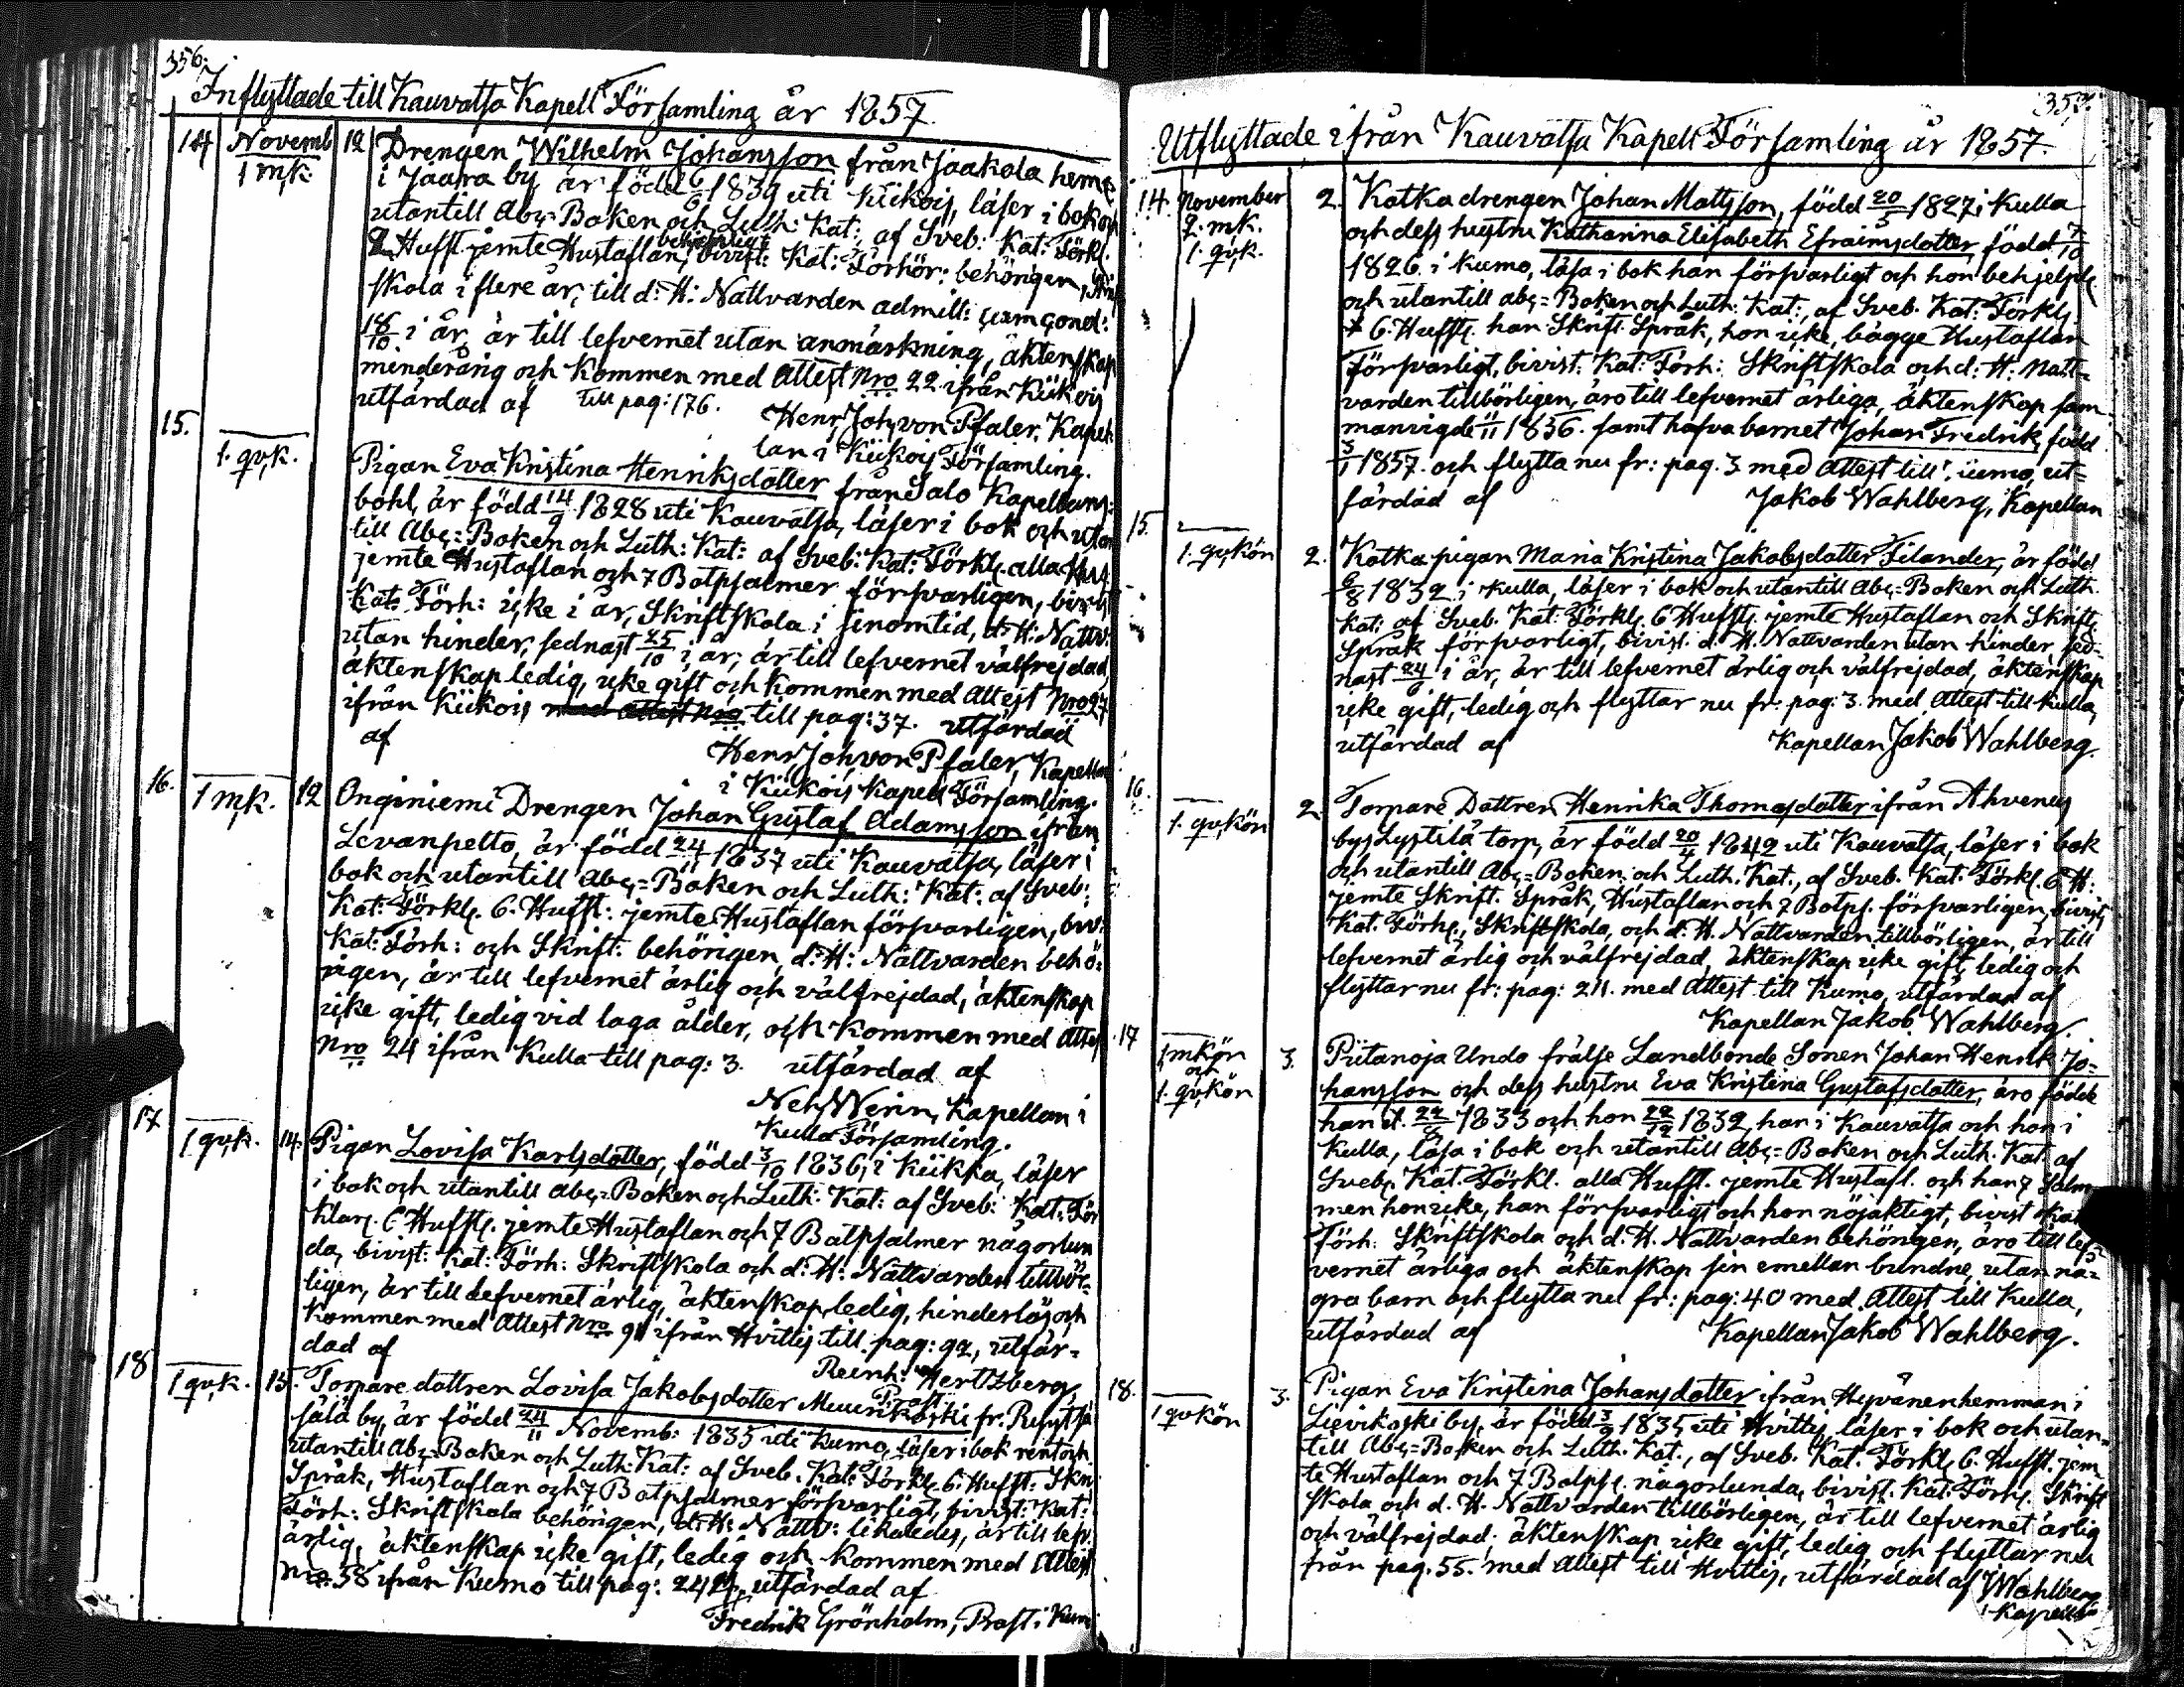 356.
Inflyttade till Kauvatsa Kapell Församling år 1857.
14 Novemb 12 Drengen Wilhelm Johansson från Jaakola hem=
1 mk. i Jaara by är född 1839 uti Kiikois, läser i bok och
utantill Abc=Boken och Luth: Kat: af Sveb: Kat: Förkl.
Hufst. jemte Hustaflan behjelpligt, bivist: Kat: Förhör: behörigen,
skola i flere år, till d: H: Nattvarden admitt:
18/10 i år, är till lefvernet utan anmärkning, äktenskap
minderårig och kommen med Attest Nro 22 ifrån Kiikois
utfärdad af till pag: 176.
Henr. Joh. von Pfaler, Kapel-
lan i Kiikois Församling.
15. 1. qvk. Pigan Eva Kristina Henriksdotter från Salo Kapellans=
bohl, är född 14/9 1828 uti Kauvatsa, läser i bok och utan
till Abc=Boken och Luth: Kat: af Sveb: Kat: Förkl. alla Hufst.
jemte Hustaflan och 7 Botpsalmer försvarligen, bivist
Kat: Förh: icke i år, Skriftskola i sinom tid, d: H: Nattv:
utan hinder, sednast 25/10 i år, är till lefvernet välfrejdad,
äktenskap ledig, icke gift och kommen med Attest Nro 27
ifrån Kiikois med attest Nro till pag: 37. utfärdad
af
Henr Joh von Pfaler, Kapellan
i Kiikois Kapell Församling.
16. 1 mk. 12 Onginiemi Drengen Johan Gustaf Adamsson ifrån
Levanpelto, är född 24/11 1837 uti Kauvatsa, läser i
bok och utantill Abc=Boken och Luth: Kat: af Sveb:
Kat: Förkl. 6. Hufst: jemte Hustaflan försvarligen, biv:
Kat: Förh: och Skrift: behörigen, d: H: Nattvarden behö=
rigen, är till lefvernet ärlig och välfrejdad, äktenskap
icke gift, ledig vid laga ålder, och kommen med Attest
Nro 24 ifrån Kulla till pag: 3. utfärdad af
Neh. Werin, Kapellan i
Kulla Församling.
17 1 qvk. 14. Pigan Lovisa Karlsdotter, född 3/10 1836, i Kiikka, läser
i bok och utantill Abc=Boken och Luth: Kat: af Sveb: Kat: För
klar. 6 Hufst. jemte Hustaflan och 7 Botpsalmer någorlun
da, bivist: Kat: Förh: Skriftskola och d: H: Nattvarden tillbör=
ligen, är till lefvernet ärlig, äktenskap ledig, hinderlös och
kommen med Attest Nro 91 ifrån Hvittis till pag: 92, utfär=
dad af
Reinh: Hertzberg,
Prost.
18 1 qvk. 15. Torpare dottren Lovisa Jakobsdotter Muurikoski fr. Ruysä
sälä by, är född 24/11 Novemb: 1835 uti Kumo, läser i bok rent och
utantill Abc=Boken och Luth: Kat: af Sveb: Kat: Förkl. 6. Hufst: Skri
Språk, Hustaflan och 7 Botpsalmer försvarligt, bivist: Kat:
Förh: Skriftskola behörigen, d: H: Nattv: likaledes, är till lefv.
ärlig, äktenskap icke gift, ledig och kommen med Attest
Nro 38 ifrån Kumo till pag: 242, utfärdad af
Fredrik Grönholm, Prost i Kumo
357.
Utflyttade ifrån Kauvatsa Kapell Församling år 1857.
14. November 2. Katka drengen Johan Mattsson, född 20/5 1827 i Kulla
2. mk. och dess hustru Katharina Elisabeth Efraimsdotter, född 7/10
1. qvk. 1826. i Kumo, läsa i bok han försvarligt och hon behjelpl.
och utantill abc=Boken och Luth: Kat:, af Sveb. Kat: Förkl.
6. Hufst. han Skrift. Språk, hon icke, bägge Hustaflan
försvarligt, bivist: Kat: Förh: Skriftskola och d: H: Natt=
varden tillbörligen, äro till lefvernet ärliga, äktenskap sam
manvigde 11/11 1856. samt hafva barnet Johan Fredrik, född
3/1 1857. och flytta nu fr: pag. 3. med Attest till Kumo, ut=
färdad af Jakob Wahlberg, Kapellan
15. 1. qvkön 2. Katka pigan Maria Kristina Jakobsdotter Filander, är född
6/8 1832 i Kulla, läser i bok och utantill Abc=Boken och Luth.
Kat: af Sveb. Kat: Förkl. 6 Hufst. jemte Hustaflan och Skrift.
Språk försvarligt, bivist. d: H. Nattvarden utan hinder, sed=
nast 24/6 i år, är till lefvernet ärlig och välfrejdad, äktenskap
icke gift, ledig och flyttar nu fr: pag: 3. med Attest till Kulla,
utfärdad af Kapellan Jakob Wahlberg.
16. 1. qvkön 2 Torpare Dottren Henrika Thomasdotter ifrån Ahvenus
bys Lystilä torp, är född 20/4 1842 uti Kauvatsa, läser i bok
och utantill Abc=Boken och Luth. Kat., af Sveb. Kat. Förkl. 6 H:
jemte Skrift. Språk, Hustaflan och 7 Botps. försvarligen, bivist
Kat. Förh., Skriftskola, och d: H. Nattvarden tillbörligen, är till
lefvernet ärlig och välfrejdad, äktenskap icke gift, ledig och
flyttar nu fr: pag: 211. med Attest till Kumo, utfärdad af
Kapellan Jakob Wahlberg.
17 1 mkön 3. Piitanoja Undo frälse Landbonde Sonen Johan Henrik Jo=
och
1. qvkön hansson och dess hustru Eva Kristina Gustafsdotter, äro födde
han d. 24/6 1833 och hon 22/12 1832, han i Kauvatsa och hon i
Kulla, läsa i bok och utantill Abc=Boken och Luth. Kat. af
Sveb. Kat. Förkl. alla Hufst. jemte Hustafl. och han 7 Salm
men hon icke, han försvarligt och hon nöjaktigt, bivist Kat
Förh: Skriftskola och d. H. Nattvarden behörigen, äro till lef=
vernet ärliga och äktenskap sin emellan bundne, utan nå=
gra barn och flytta nu fr: pag: 40 med Attest till Kulla,
utfärdad af Kapellan Jakob Wahlberg.
18. 1 qvkön 3. Pigan Eva Kristina Johansdotter ifrån Hyvänen hemman i
Lievikoski by, är född 3/9 1835 uti Hvittis, läser i bok och utan=
till Abc=Boken och Luth. Kat., af Sveb. Kat. Förkl. 6. Hufst. jem
te Hustaflan och 7 Botps. någorlunda, bivist. Kat: Förh. Skrift
skola och d. H. Nattvarden tillbörligen, är till lefvernet ärlig
och välfrejdad, äktenskap icke gift, ledig och flyttar nu
från pag. 55. med Attest till Hvittis, utfärdad af J Wahlberg
Kapellan